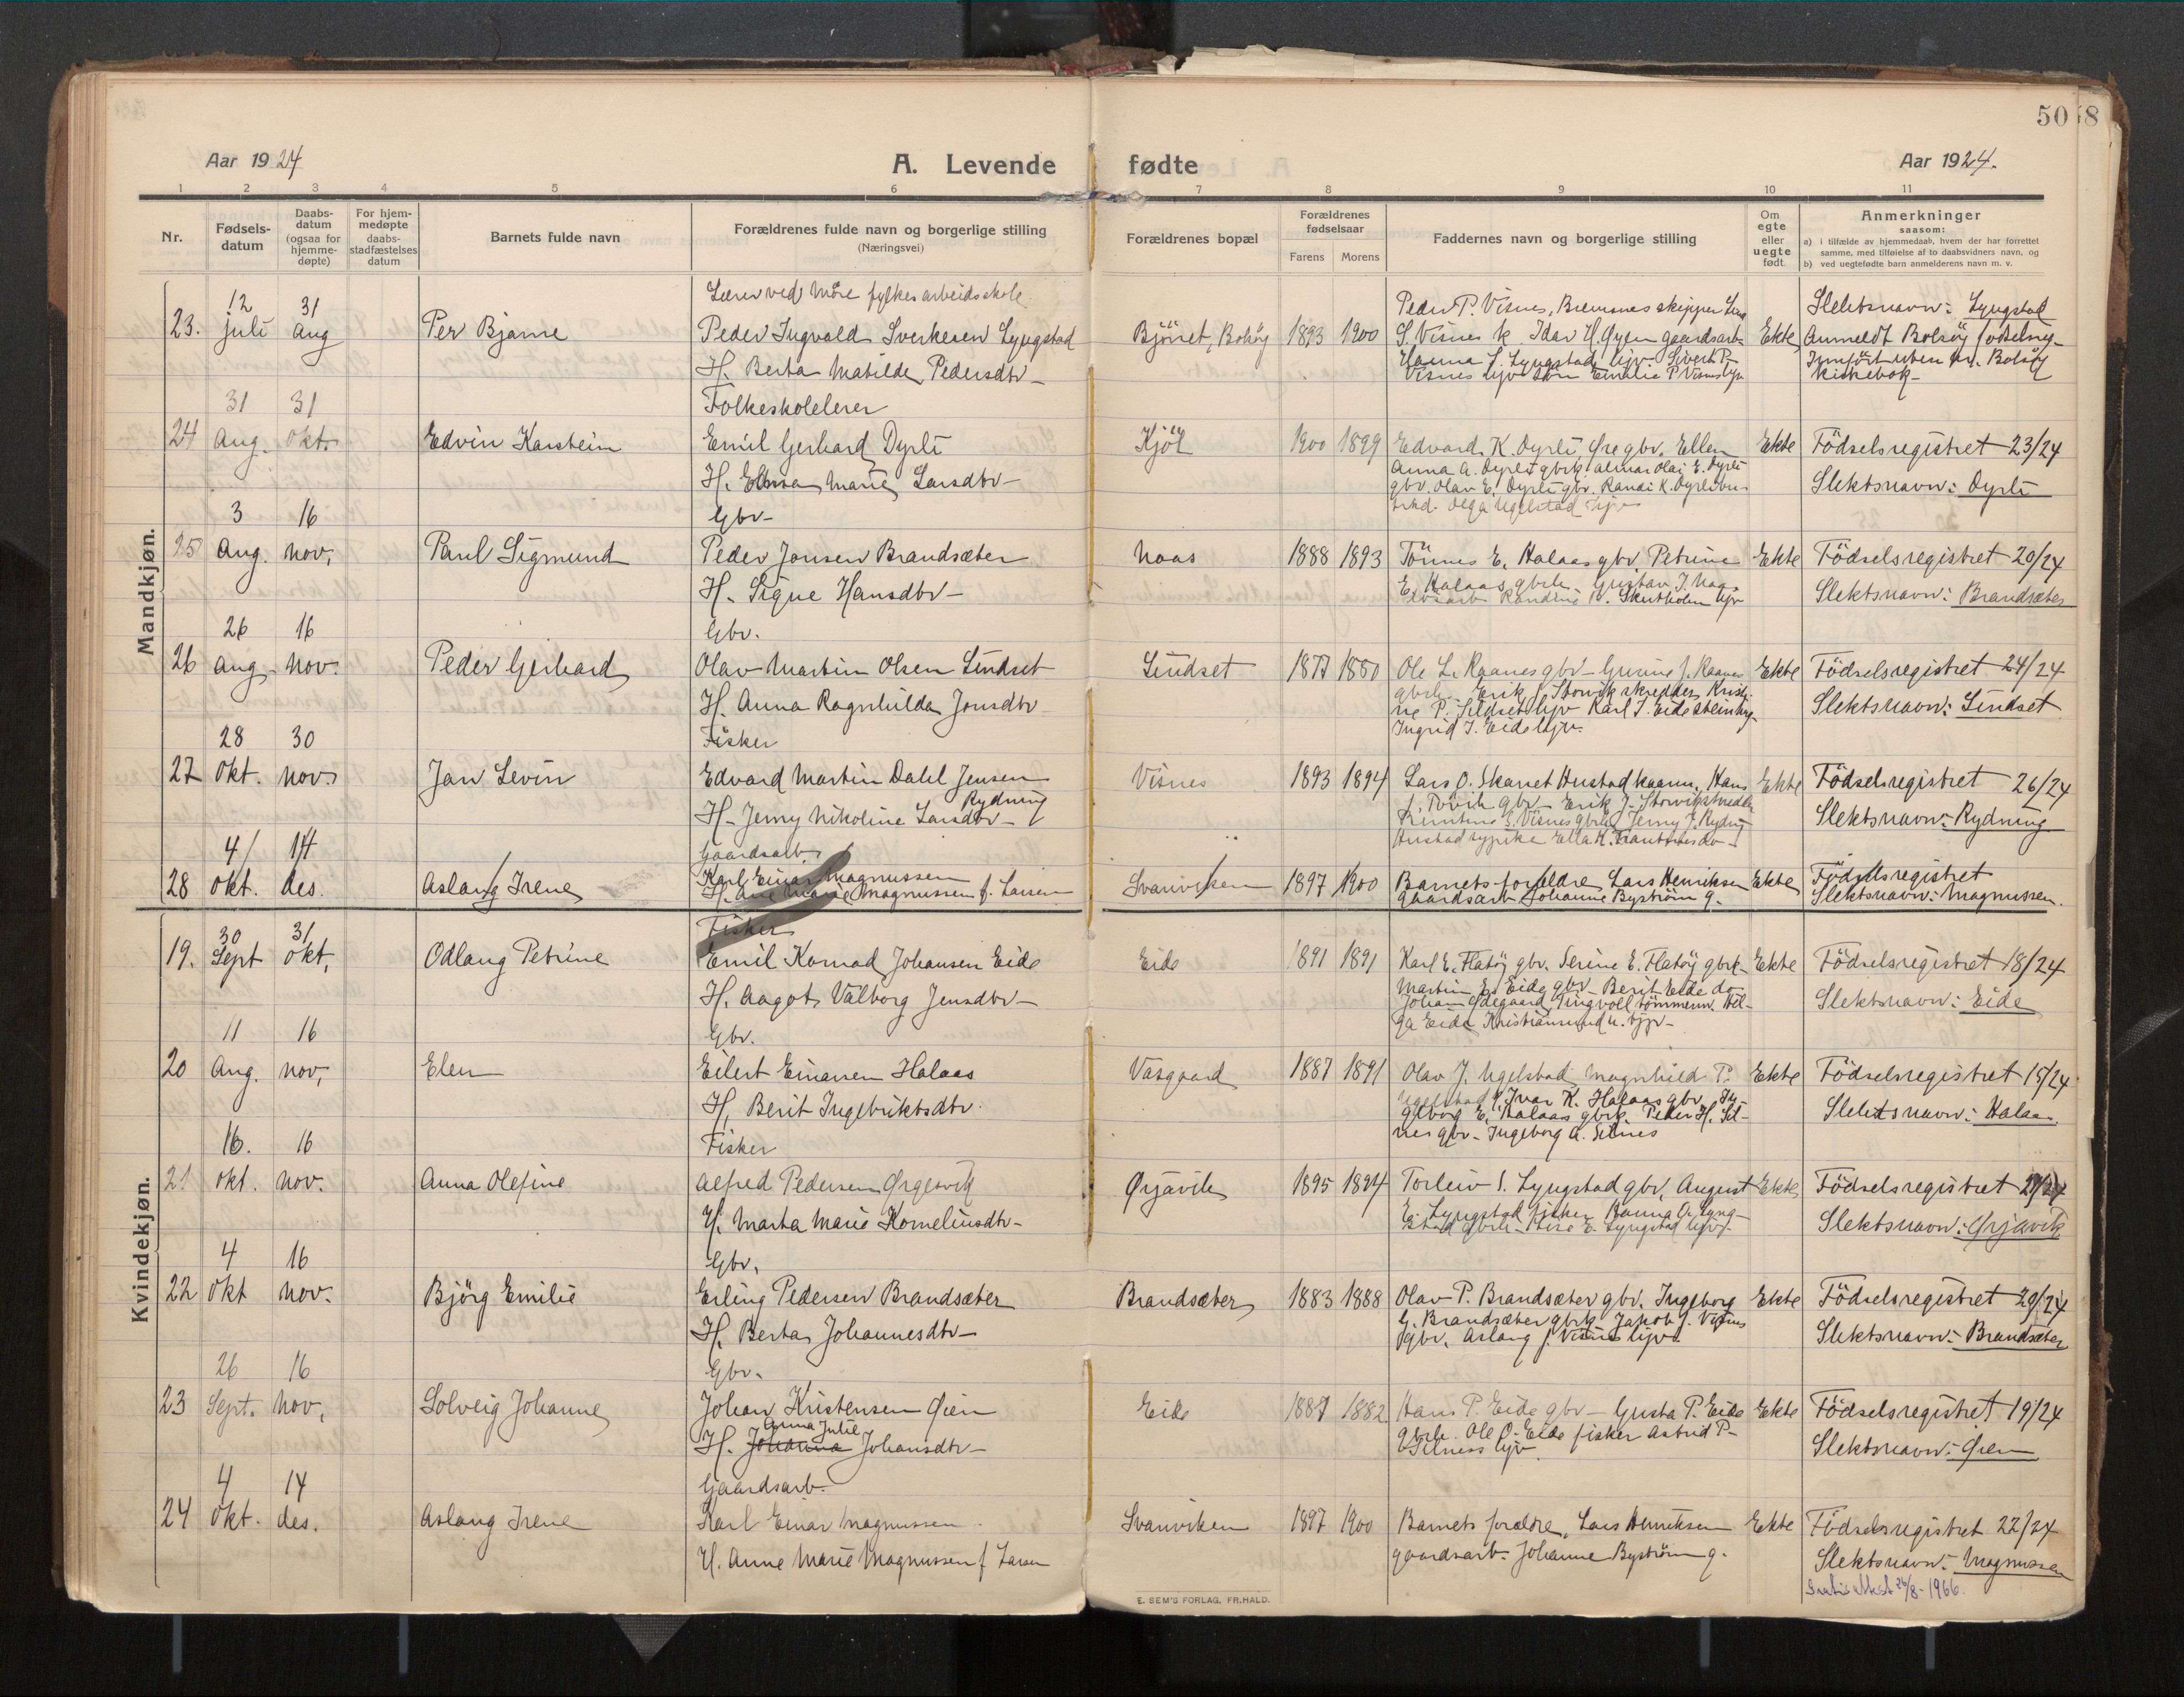 50
Aar 1924
A. Levende fødte
Aar 1924.
1 2 3 4 5 6 7 8 9 10 11
Nr.
Fødsels-
datum
Daabs-
datum
(ogsaa for
hjemme-
døpte)
For hjem-
medøpte
daabs-
stadfæstelses
datum
Barnets fulde navn
Forældrenes fulde navn og borgerlige stilling
(Næringsvei)
Forældrenes bopæl
Forældrenes
fødselsaar
Farens Morens
Faddernes navn og borgerlige stilling
Om
egte
eller
uegte
født.
Anmerkninger
saasom:
a) i tilfælde av hjemmedaab, hvem der har forrettet
samme, med tilføielse af to daabsvidners navn, og
b) ved uegtefødte barn anmelderens navn m. v.
Mandkjøn.
23.
12
juli
31
Aug
Per Bjarne
Lærer ved Møre fylkes arbeidsskole.
Peder Ingvald Sverkesen Lyngstad
H. Berta Matilde Pedersdtr
Bjørset, Bolsøy
1893 1900
Peder P. Visnes, Bremsnes skipper
S. Visnes k. Idar H. Øyen gaardsarb.
Hanna S. Lyngstad hjv. Sivert P.
Visnes hjv Emilie P. Visnes hjv
Ekte
Slektsnavn: Lyngstad
Anmeldt Bolsøy fødselsreg-
Innført uten nr. Bolsøy
kirkebok
24
31
Aug.
31
Okt.
Edvin Karstein
Folkeskolelærer
Emil Gerhard Dyrli
H. Marie Larsdtr
Kjöl
1900 1899
Edvard K. Dyrli Øre gbr. Ellen
Anna A. Dyrli gbrk. Almar Olai E. Dyrli
gbr. Olav E. Dyrli gbr. Randi K. Dyrli
Olga Ugelstad hjv
Ekte
Födselsregistret 23/24
Slektsnavn: Dyrli
25
3
Aug.
16
nov.
Paul Sigmund
Gbr.
Peder Jonsen Brandsæter
H. Signe Hansdtr
Naas
1888 1893
Tönnes E. Halaas gbr. Petrine
E. Halaas gbrk. Gustav J. Naas
Randine O. Skutholm hjv
Ekte
Födselsregistret 20/24
Slektsnavn: Brandsæter
26
26
Aug.
16
Nov.
Peder Gerhard
Gbr.
Olav Martin Olsen Lindset
H. Anna Ragnhilda Jonsdtr
Lindset
1877 1880
Ole L. Raanes gbr. Gurine J. Raanes
gbrk. Erik J. Storvik skredder Kristi-
ne P. Sildset hjv Karl J. Eide steinhug.
Ingrid J. Eide hjv.
Ekte
Födselsregistret 24/24
Slektsnavn: Lindset
27
28
Okt.
30
nov.
Jan Levin
Fisker
Edvard Martin Dahl Jensen
Rydning
H. Jenny Nikoline Larsdtr
Visnes
1893 1894
Lars O. Skarret Hustad kaarm. Hans
J. Tövik gbr. Erik J. Storvik skredder
S. Visnes gbrk Jenny J. Rydning
Hustad sypike Ella K. do
Ekte
Födselsregistret 26/24
Slektsnavn: Rydning
28
4
Okt.
14
des.
Aslaug Irene
Gaardsarb.
Karl Einar Magnussen
H. Ane Marie Magnussen f. Larsen
Svanviken
1897 1900
Barnets forældre, Lars Henriksen
gaardsarb. Johanne Byström g.
Ekte
Födselsregistret
Slektsnavn: Magnussen.
Kvindekjøn.
19.
30
Sept
31
Okt.
Odlaug Petrine
Fisker
Emil Konrad Johansen Eide
H. Aagot Valborg Jensdtr
Eide
1891 1891
Karl E. Flatöy gbr. Serine E. Flatöy gbrk.
Martin E. Eide gbr. Berit Eide do
Johan Ødegaard Tingvoll tömmerm. Hel-
ga Eide Kristiansund n. hjv
Ekte
Födselsregistret 18/24
Slektsnavn: Eide
20
11
Aug.
16
nov.
Elen
Gbr.
Eilert Einarsen Halaas
H. Berit Ingebriktsdtr.
Vasgaard
1887 1891
Olav J. Ugelstad, Magnhild P.
Ugelstad, Ivar K. Halaas gbr, In-
geborg E. Halaas gbrk. Peder H. Sil-
nes gbr. Ingeborg A. Silnes
Ekte
Födselsregistret 15/24
Slektsnavn: Halaas
21
16.
Okt.
16
nov.
Anna Olefine
Fisker
Alfred Pedersen Ørgevik
H. Marta Marie Korneliusdtr
Ørjavik
1895 1894
Torleiv S. Lyngstad gbr, August
E. Lyngstad fisker Hanna A. Lyng-
stad gbrk. E. Lyngstad hjv.
Ekte
Födselsregistret
Slektsnavn: Ørjavik
22
4
Okt
16
nov.
Björg Emilie
Gbr.
Erling Pedersen Brandsæter
H. Berta Johannesdtr
Brandsæter
1883 1888
Olav P. Brandsæter gbr. Ingeborg
G. Brandsæter gbrk. Jakob J. Visnes
gbr. Aslaug J. Visnes hjv.
Ekte
Födselsregistret 20/24
Slektsnavn: Brandsæter
23
26
Sept.
16
Nov.
Solveig Johanne
Gbr.
Johan Kristensen Øien
Anna Julie
H. Johanna Johansdtr
Eide
1887 1882
Hans P. Eide gbr. Gusta P. Eide
gbrk. Ole O. Eide fisker Astrid P.
Silness hjv
Ekte
Födselsregistret 19/24
Slektsnavn: Øien
24
4
Okt.
14
des.
Aslaug Irene
Gaardsarb.
Karl Einar Magnussen
H. Anne Marie Magnussen f Larsen
Svanviken
1897 1900
Barnets forældre, Lars Henriksen
gaardsarb. Johanne Byström g.
Ekte
Födselsregistret 22/24
Slektsnavn: Magnussen
Gratisattest 26/8-1966.
E. SEM'S FORLAG, FR.HALD.